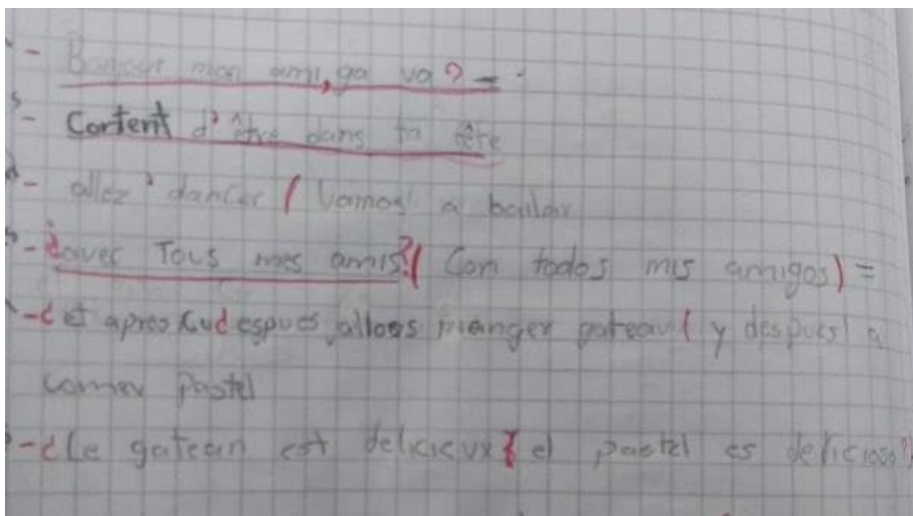 - Bonjour mon ami, ça va? - .
- Content d'être dans ta fête
- allez' dancer ( Vamos a bailar
- ¿avec Tous mes amis? ( Con todos mis amigos) =
- ¿ et apres allons manger gateau ( y despues a
comer Pastel
- ¿ Le gateau est delicieux ( el pastel es delicioso?)